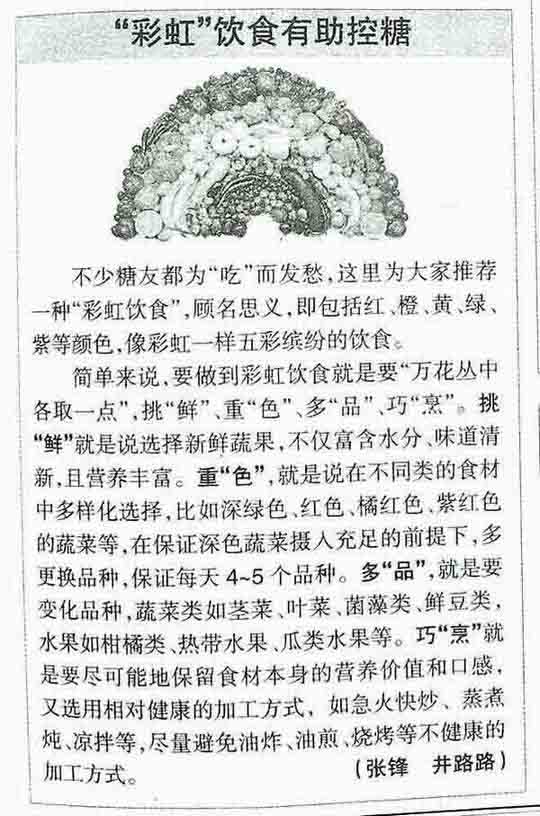 “彩虹”饮食有助控糖
不少糖友都为“吃”而发愁，这里为大家推荐
一种“彩虹饮食”，顾名思义，即包括红、橙、黄、绿、
紫等颜色，像彩虹一样五彩缤纷的饮食。
简单来说，要做到彩虹饮食就是要“万花丛中
各取一点”，挑“鲜”、重“色”、多“品”、巧“烹”。挑
“鲜”就是说选择新鲜蔬果，不仅富含水分、味道清
新，且营养丰富。重“色”，就是说在不同类的食材
中多样化选择，比如深绿色、红色、橘红色、紫红色
的蔬菜等，在保证深色蔬菜摄入充足的前提下，多
更换品种，保证每天4~5个品种。多“品”，就是要
变化品种，蔬菜类如茎菜、叶菜、菌藻类、鲜豆类，
水果如柑橘类、热带水果、瓜类水果等。巧“烹”就
是要尽可能地保留食材本身的营养价值和口感，
又选用相对健康的加工方式，如急火快炒、蒸煮
炖、凉拌等，尽量避免油炸、油煎、烧烤等不健康的
加工方式。（张锋　井路路）